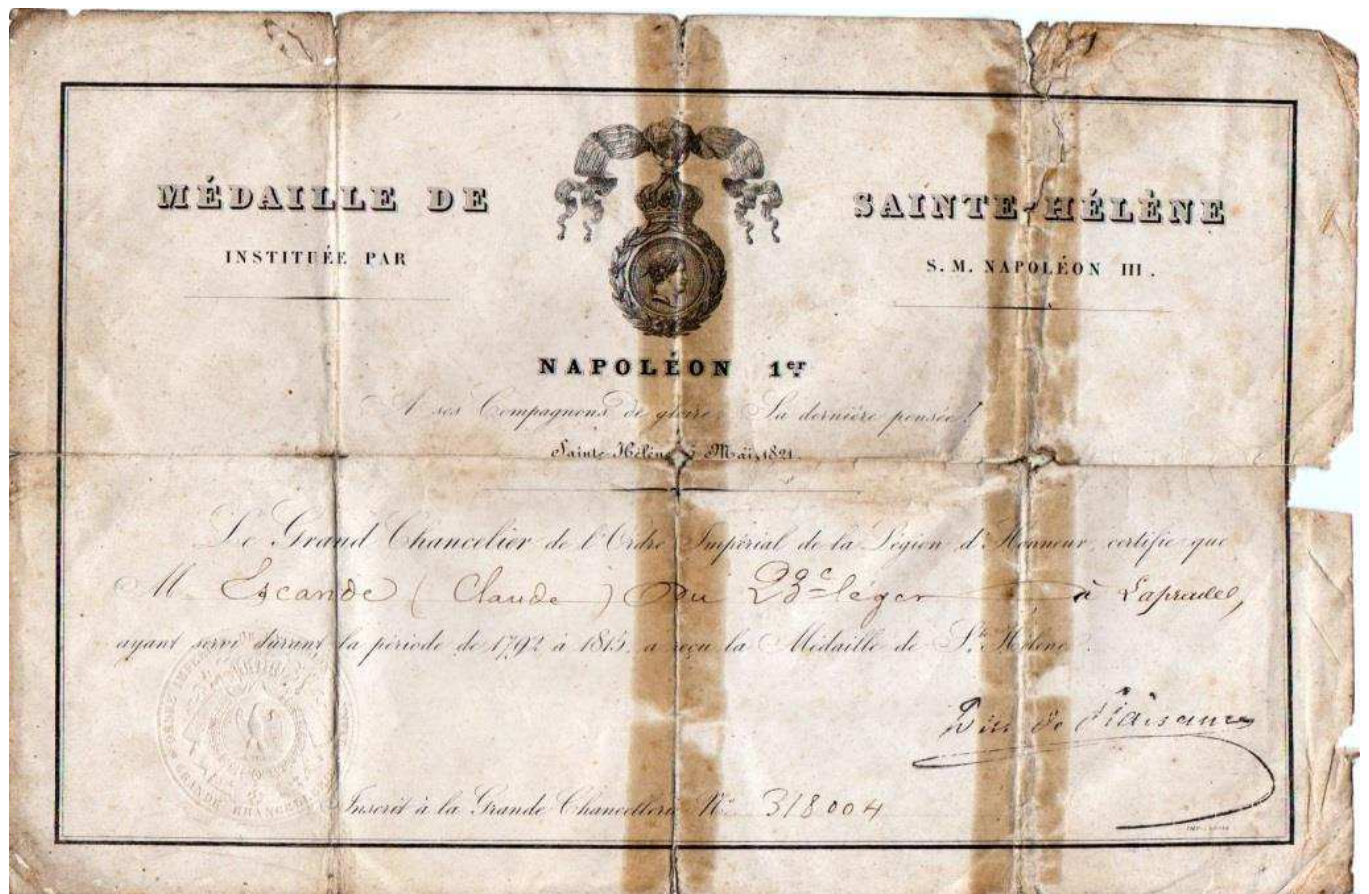 MÉDAILLE DE SAINTE-HÉLÈNE
INSTITUÉE PAR S. M. NAPOLÉON III.
NAPOLÉON 1er
A ses Compagnons de gloire, Sa dernière pensée!
Sainte-Hélène 5 Mai, 1821.
Le Grand Chancelier de l'Ordre Impérial de la Légion d'Honneur, certifie que
M. Escande (Claude) du léger à Lapradel,
ayant servi durant la période de 1792 à 1815, a reçu la Médaille de Ste Hélène.
Duc de Plaisance
Inscrit à la Grande Chancellerie No 318004